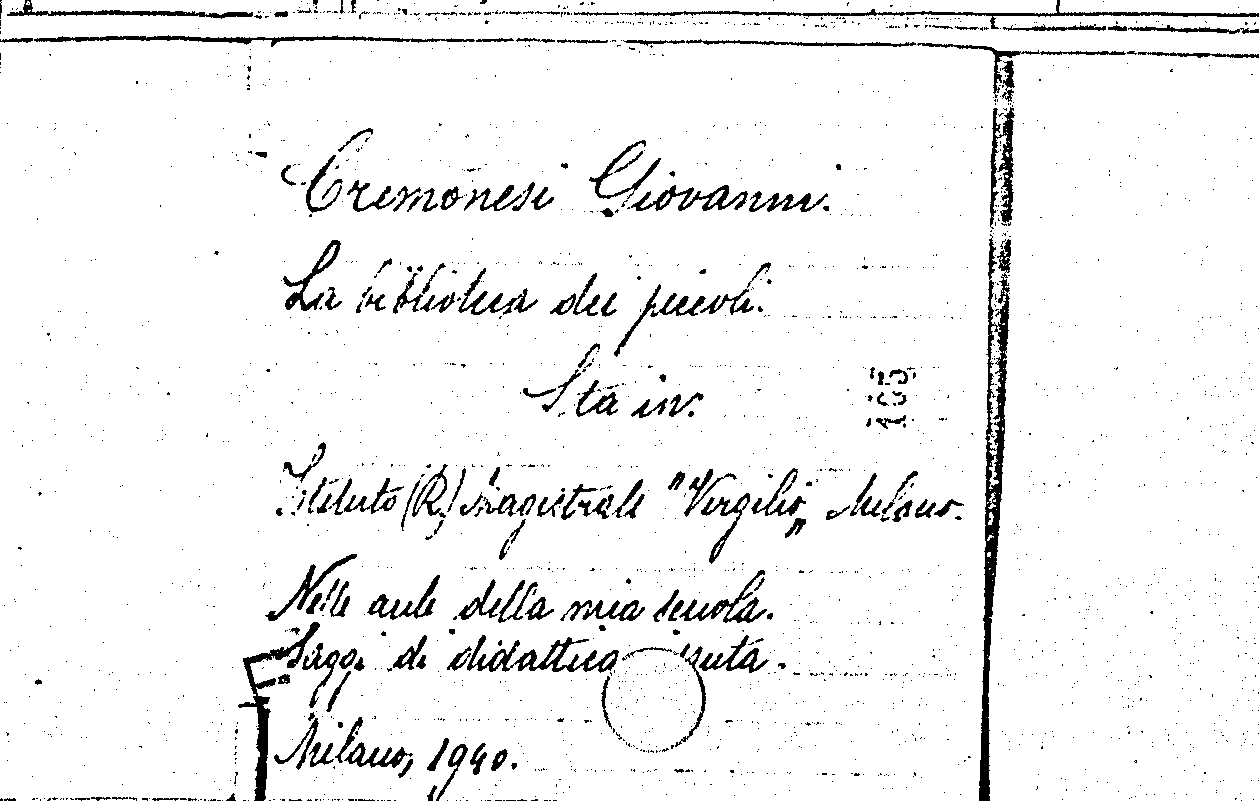 Cremonesi Giovanni.
La biblioteca dei piccoli.
Sta in:
165
Istituto (R.) Magistrale "Virgilio„ Milano.
Nelle aule della mia scuola.
Saggi di didattica
Milano, 1940.